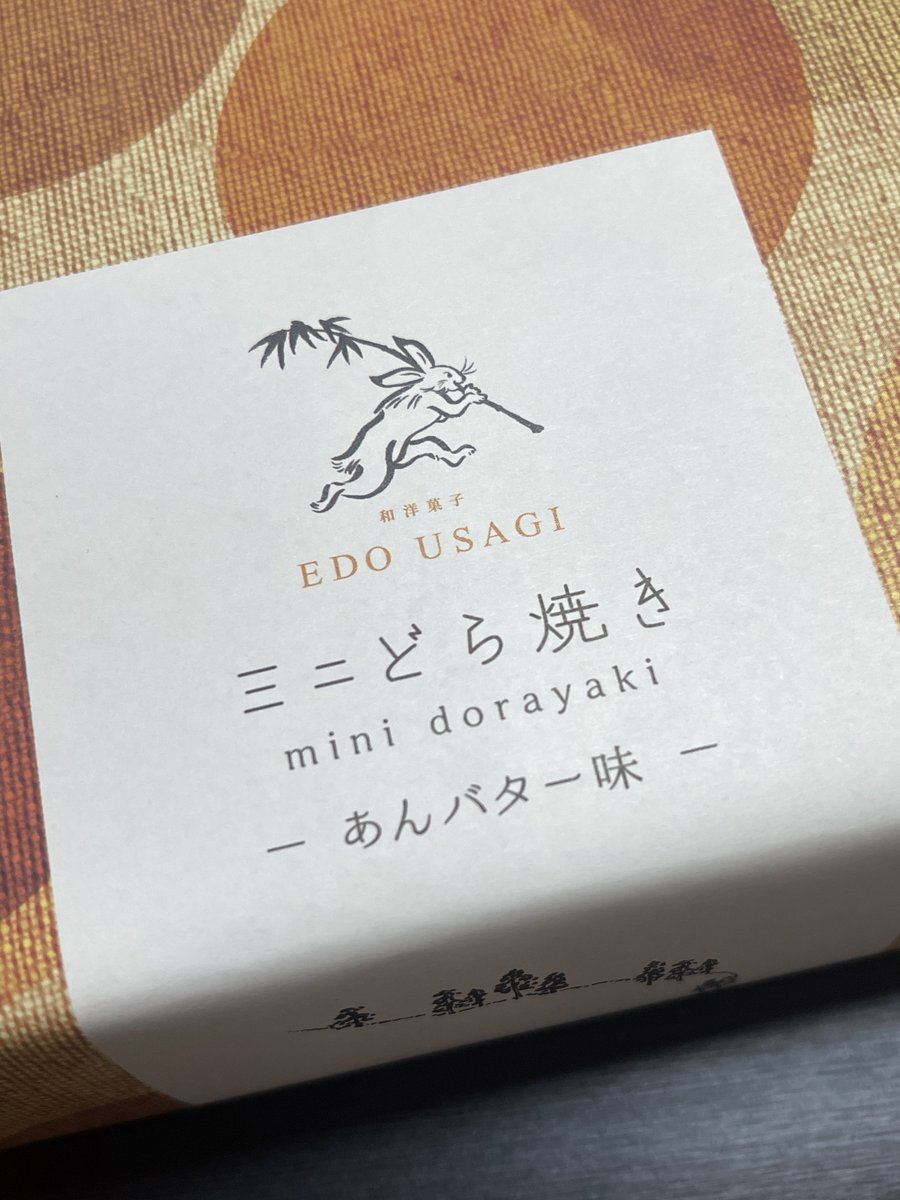 和洋菓子
EDO USAGI
ミニどら焼き
mini dorayaki
— あんバター味 —